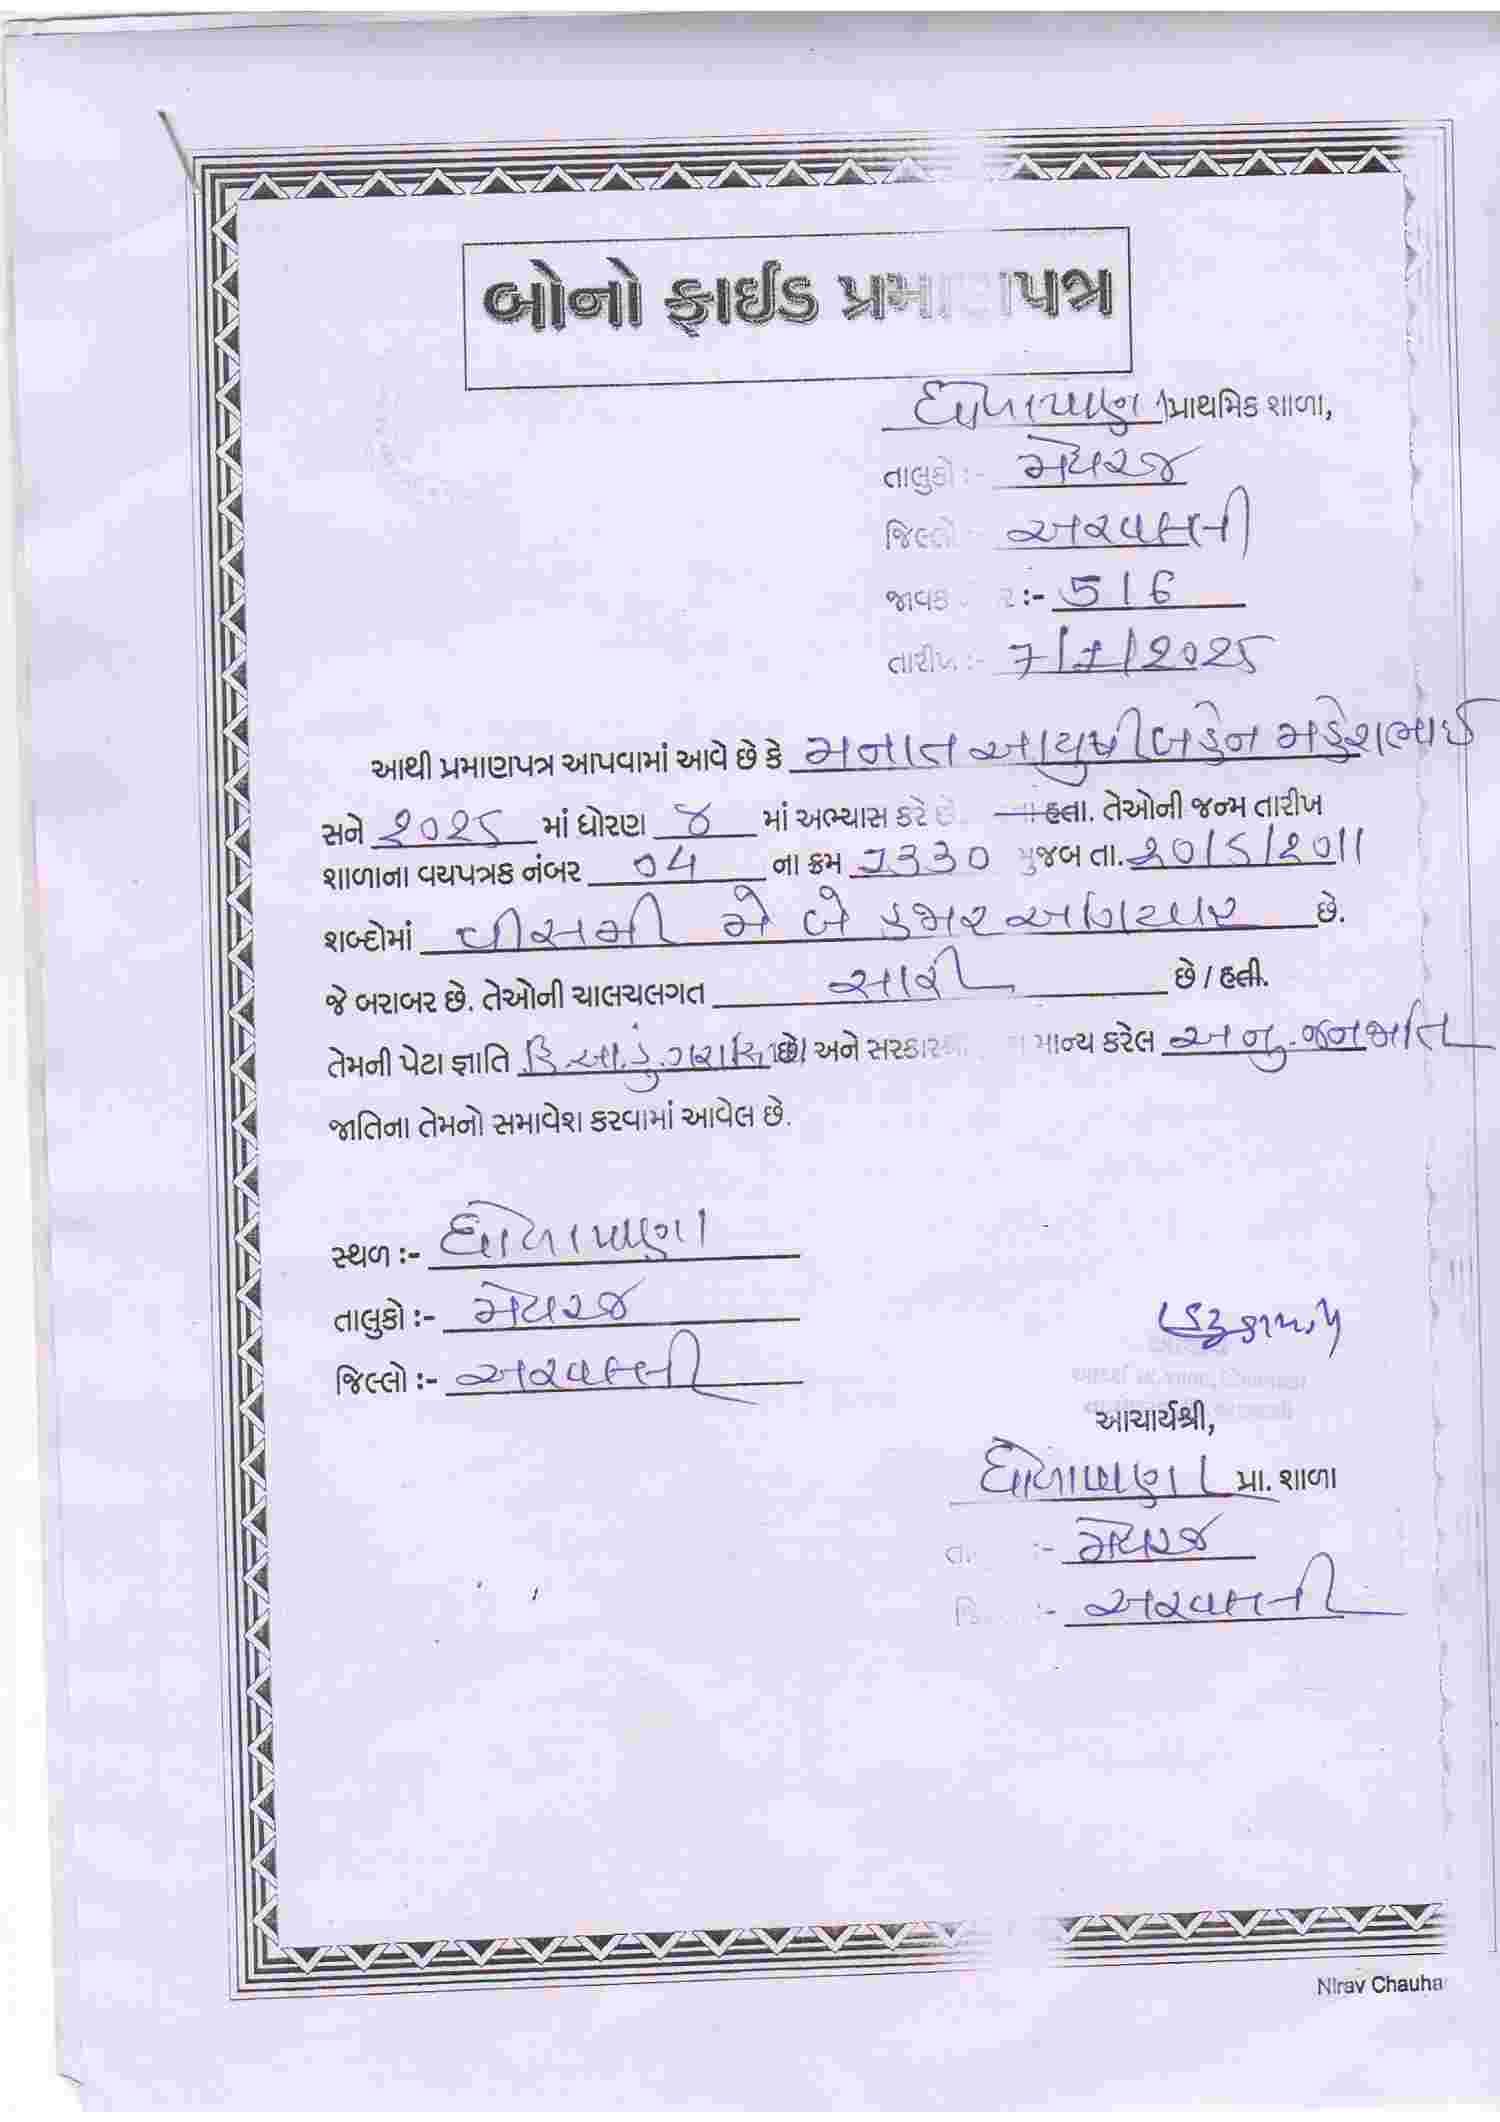 બોનો ફાઈડ પ્રમાણપત્ર
ધોળાપાણા પ્રાથમિક શાળા,
તાલુકો :- મેઘરજ
જિલ્લો :- અરવલ્લી
જાવક નંબર :- 516
તારીખ :- 7/7/2025
આથી પ્રમાણપત્ર આપવામાં આવે છે કે મનાત આયુષીબહેન મહેશભાઈ
સને 2025 માં ધોરણ ૪ માં અભ્યાસ કરે છે. હતા. તેઓની જન્મ તારીખ
શાળાના વયપત્રક નંબર 04 ના ક્રમ 1330 મુજબ તા. 20/5/2011
શબ્દોમાં વીસમી મે બે હજાર અગિયાર છે.
જે બરાબર છે. તેઓની ચાલચલગત સારી છે / હતી.
તેમની પેટા જ્ઞાતિ હિ.આ.ડું.ગરાસિ છે અને સરકાર માન્ય કરેલ અનુ.જનજાતિ
જાતિના તેમનો સમાવેશ કરવામાં આવેલ છે.
સ્થળ :- ધોળાપાણા
તાલુકો :- મેઘરજ
જિલ્લો :- અરવલ્લી
આચાર્યશ્રી,
ધોળાપાણા પ્રા. શાળા
તા. :- મેઘરજ
જિ. :- અરવલ્લી
Nirav Chauha